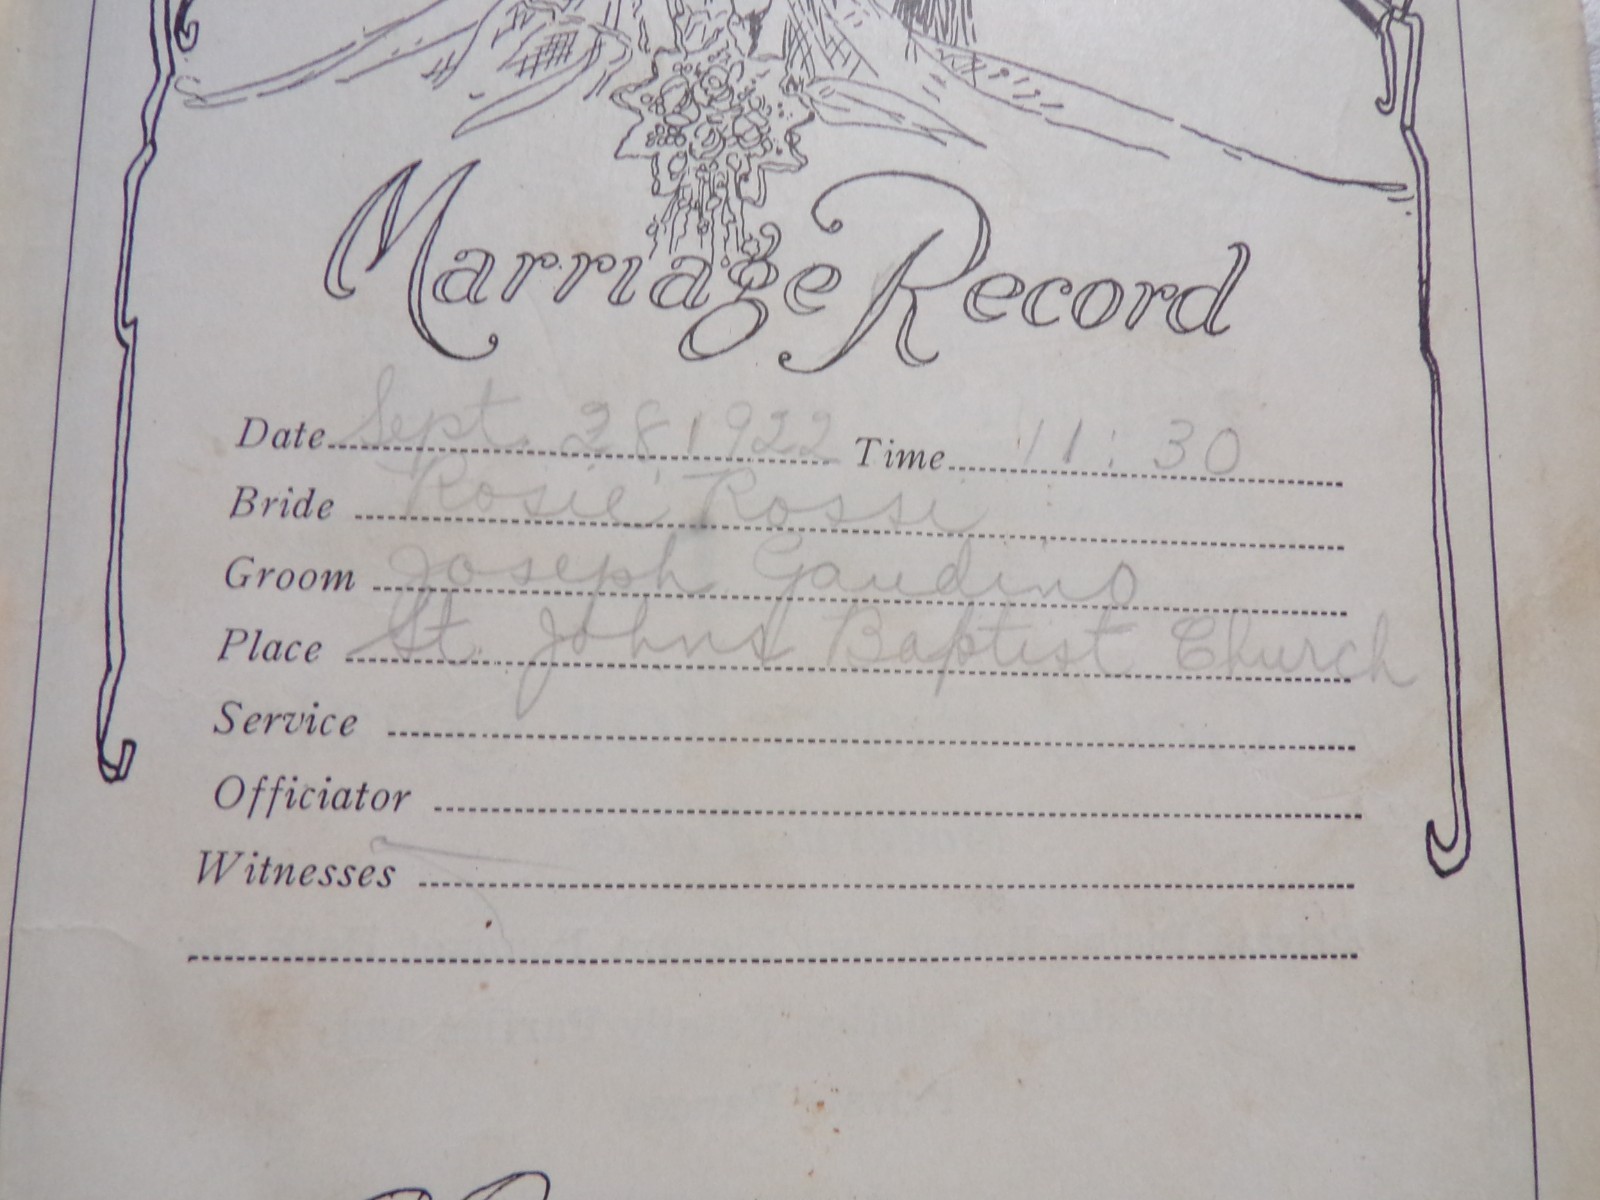 Marriage Record
Date Sept. 28, 1922 Time 11:30
Bride Rosie Rossi
Groom Joseph Gaudino
Place St. Johns Baptist Church
Service
Officiator
Witnesses